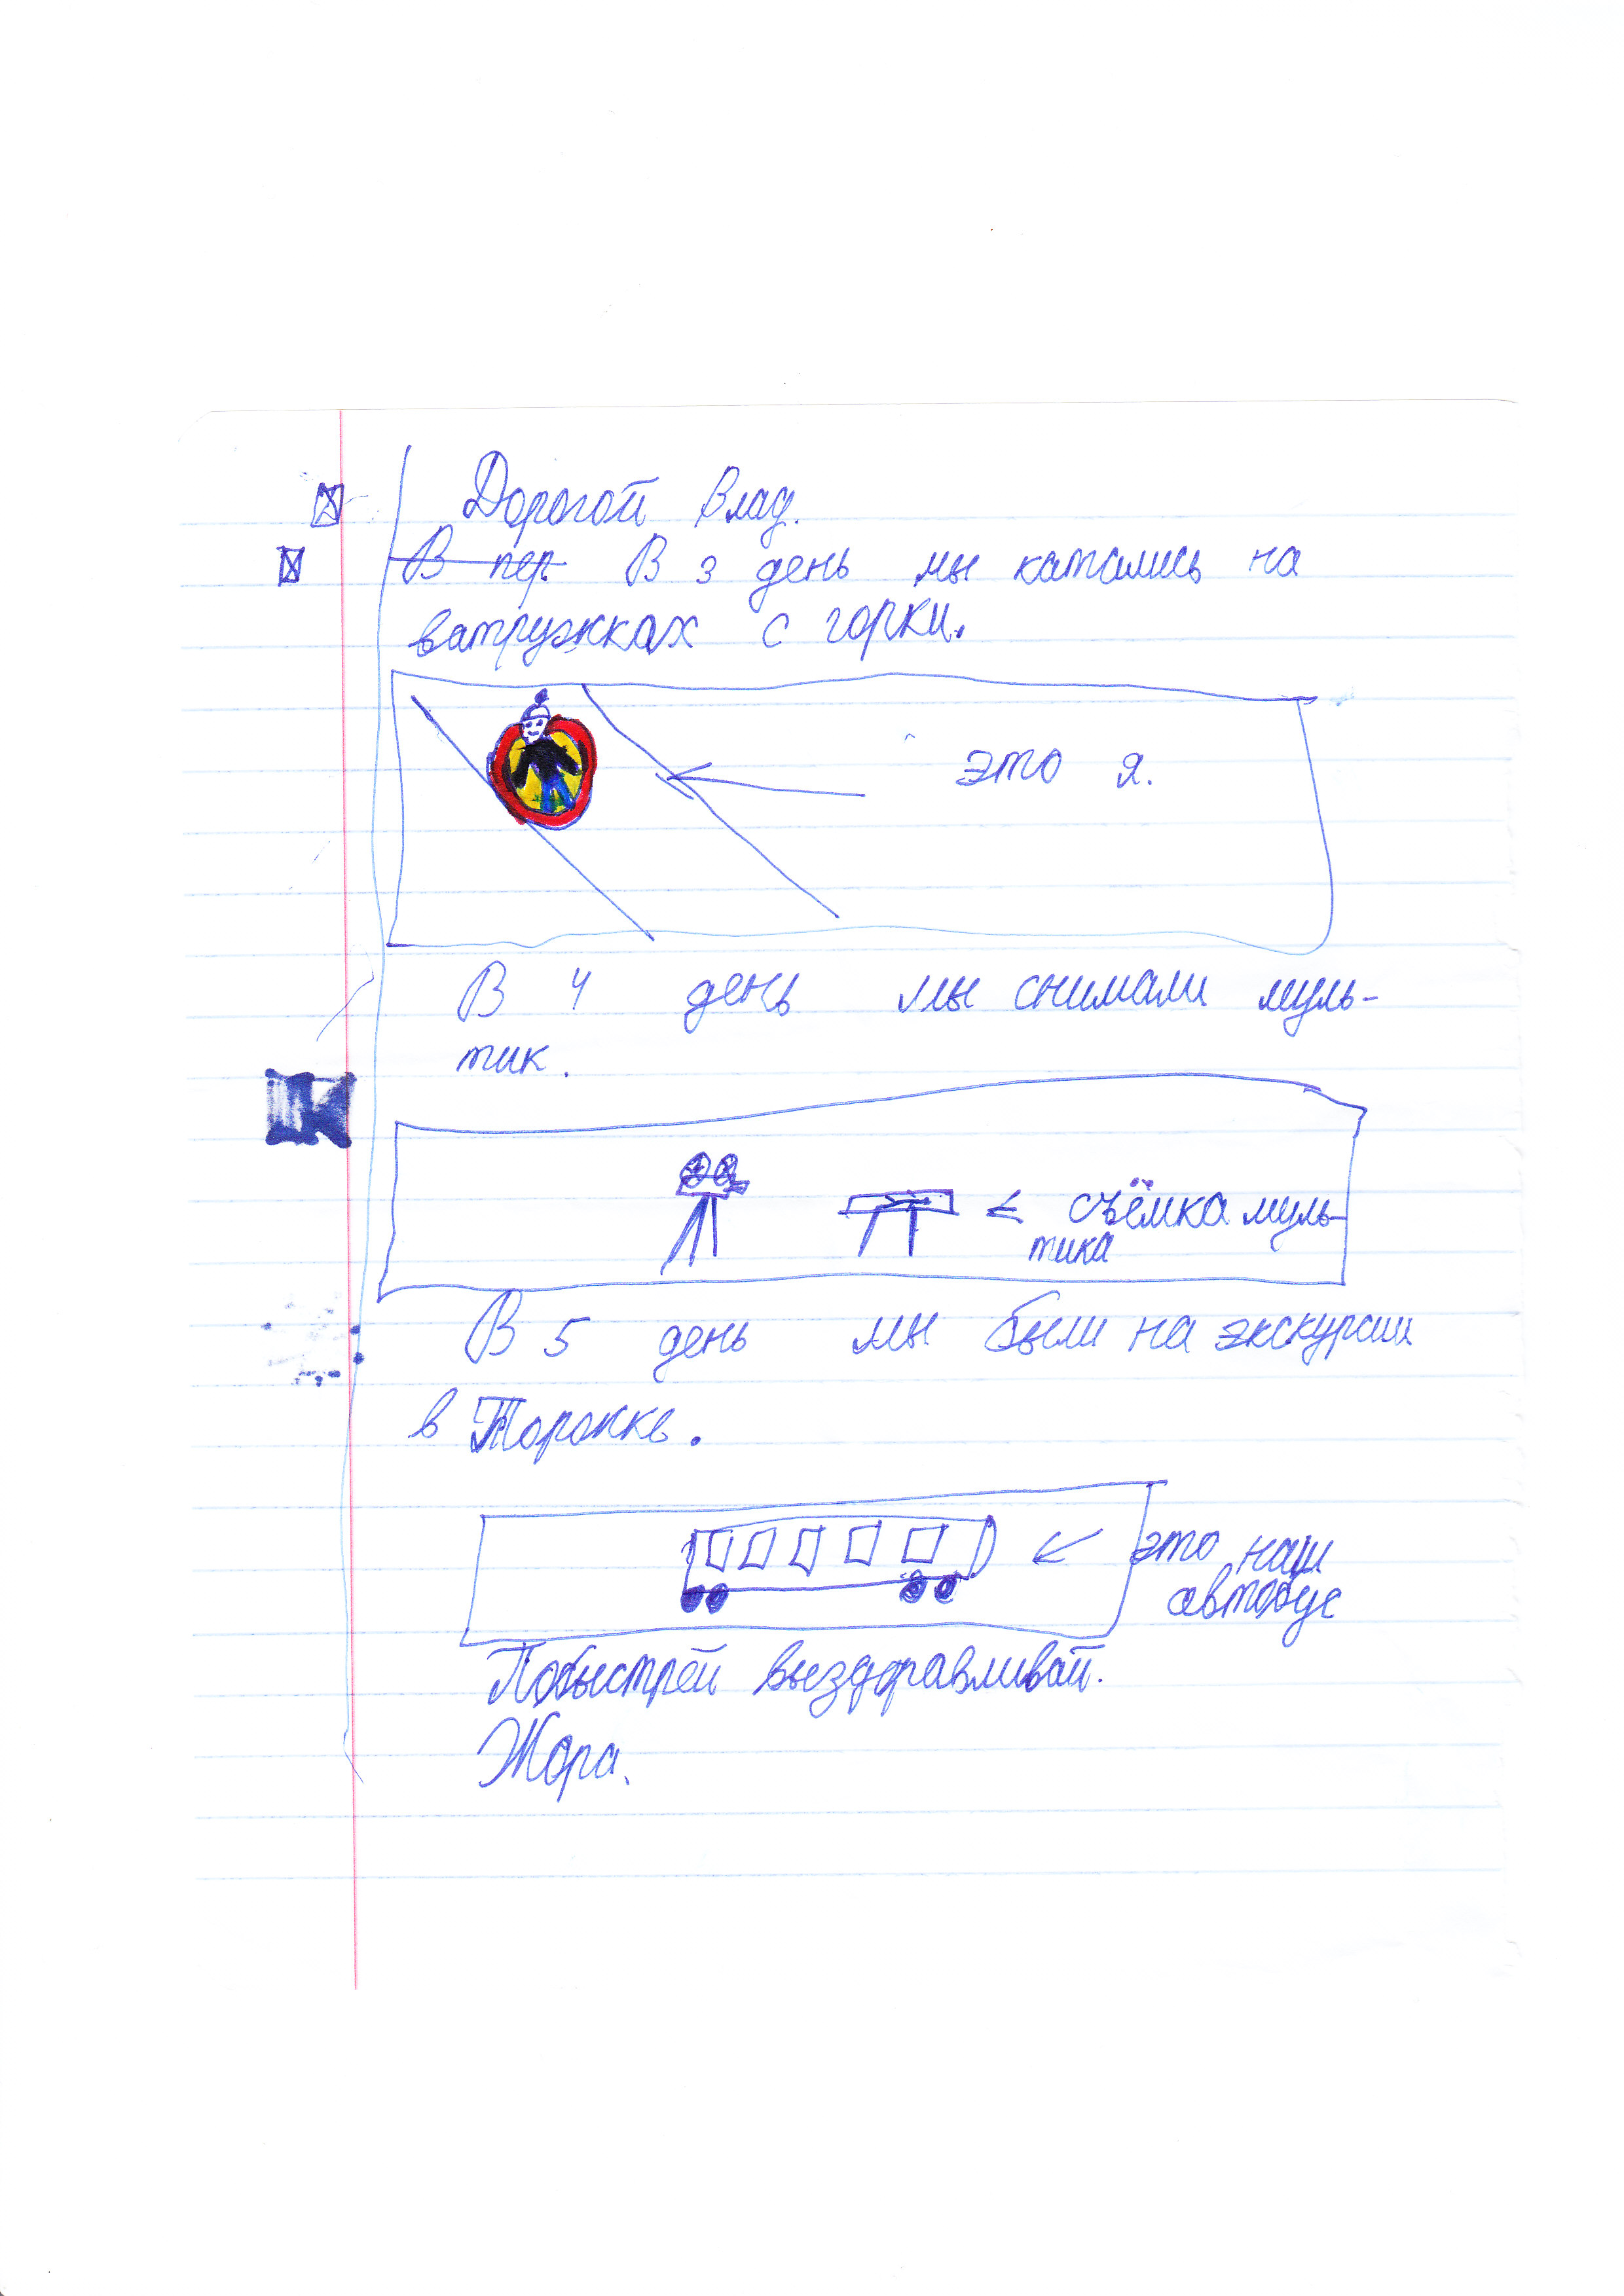 Дорогой Влад.
В пер. В 3 день мы катались на
ватружках с горки.
это я.
В 4 день мы снимали муль-
тик.
съёмка муль-
тика
В 5 день мы были на экскурсии
в Торжке.
это наш
автобус
Побыстрей выздоравливай.
Жора.